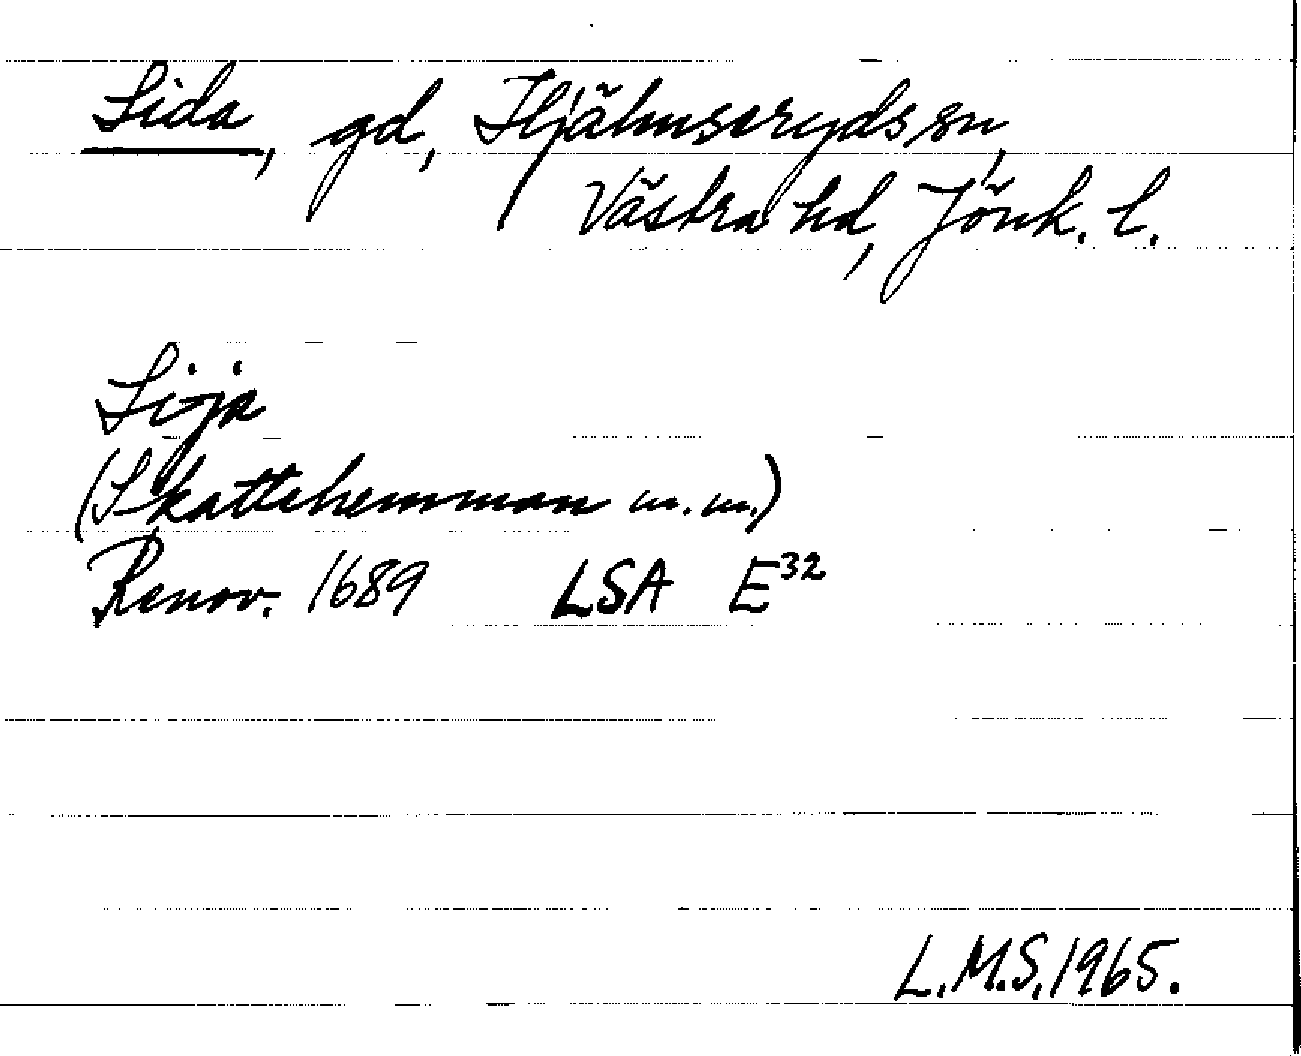 Sida, gd, Hjälmseryds sn,
Västra hd, Jönk. l.
Sija
(Skattehemman m.m.)
Renov. 1689 LSA E32
L.M.S. 1965.